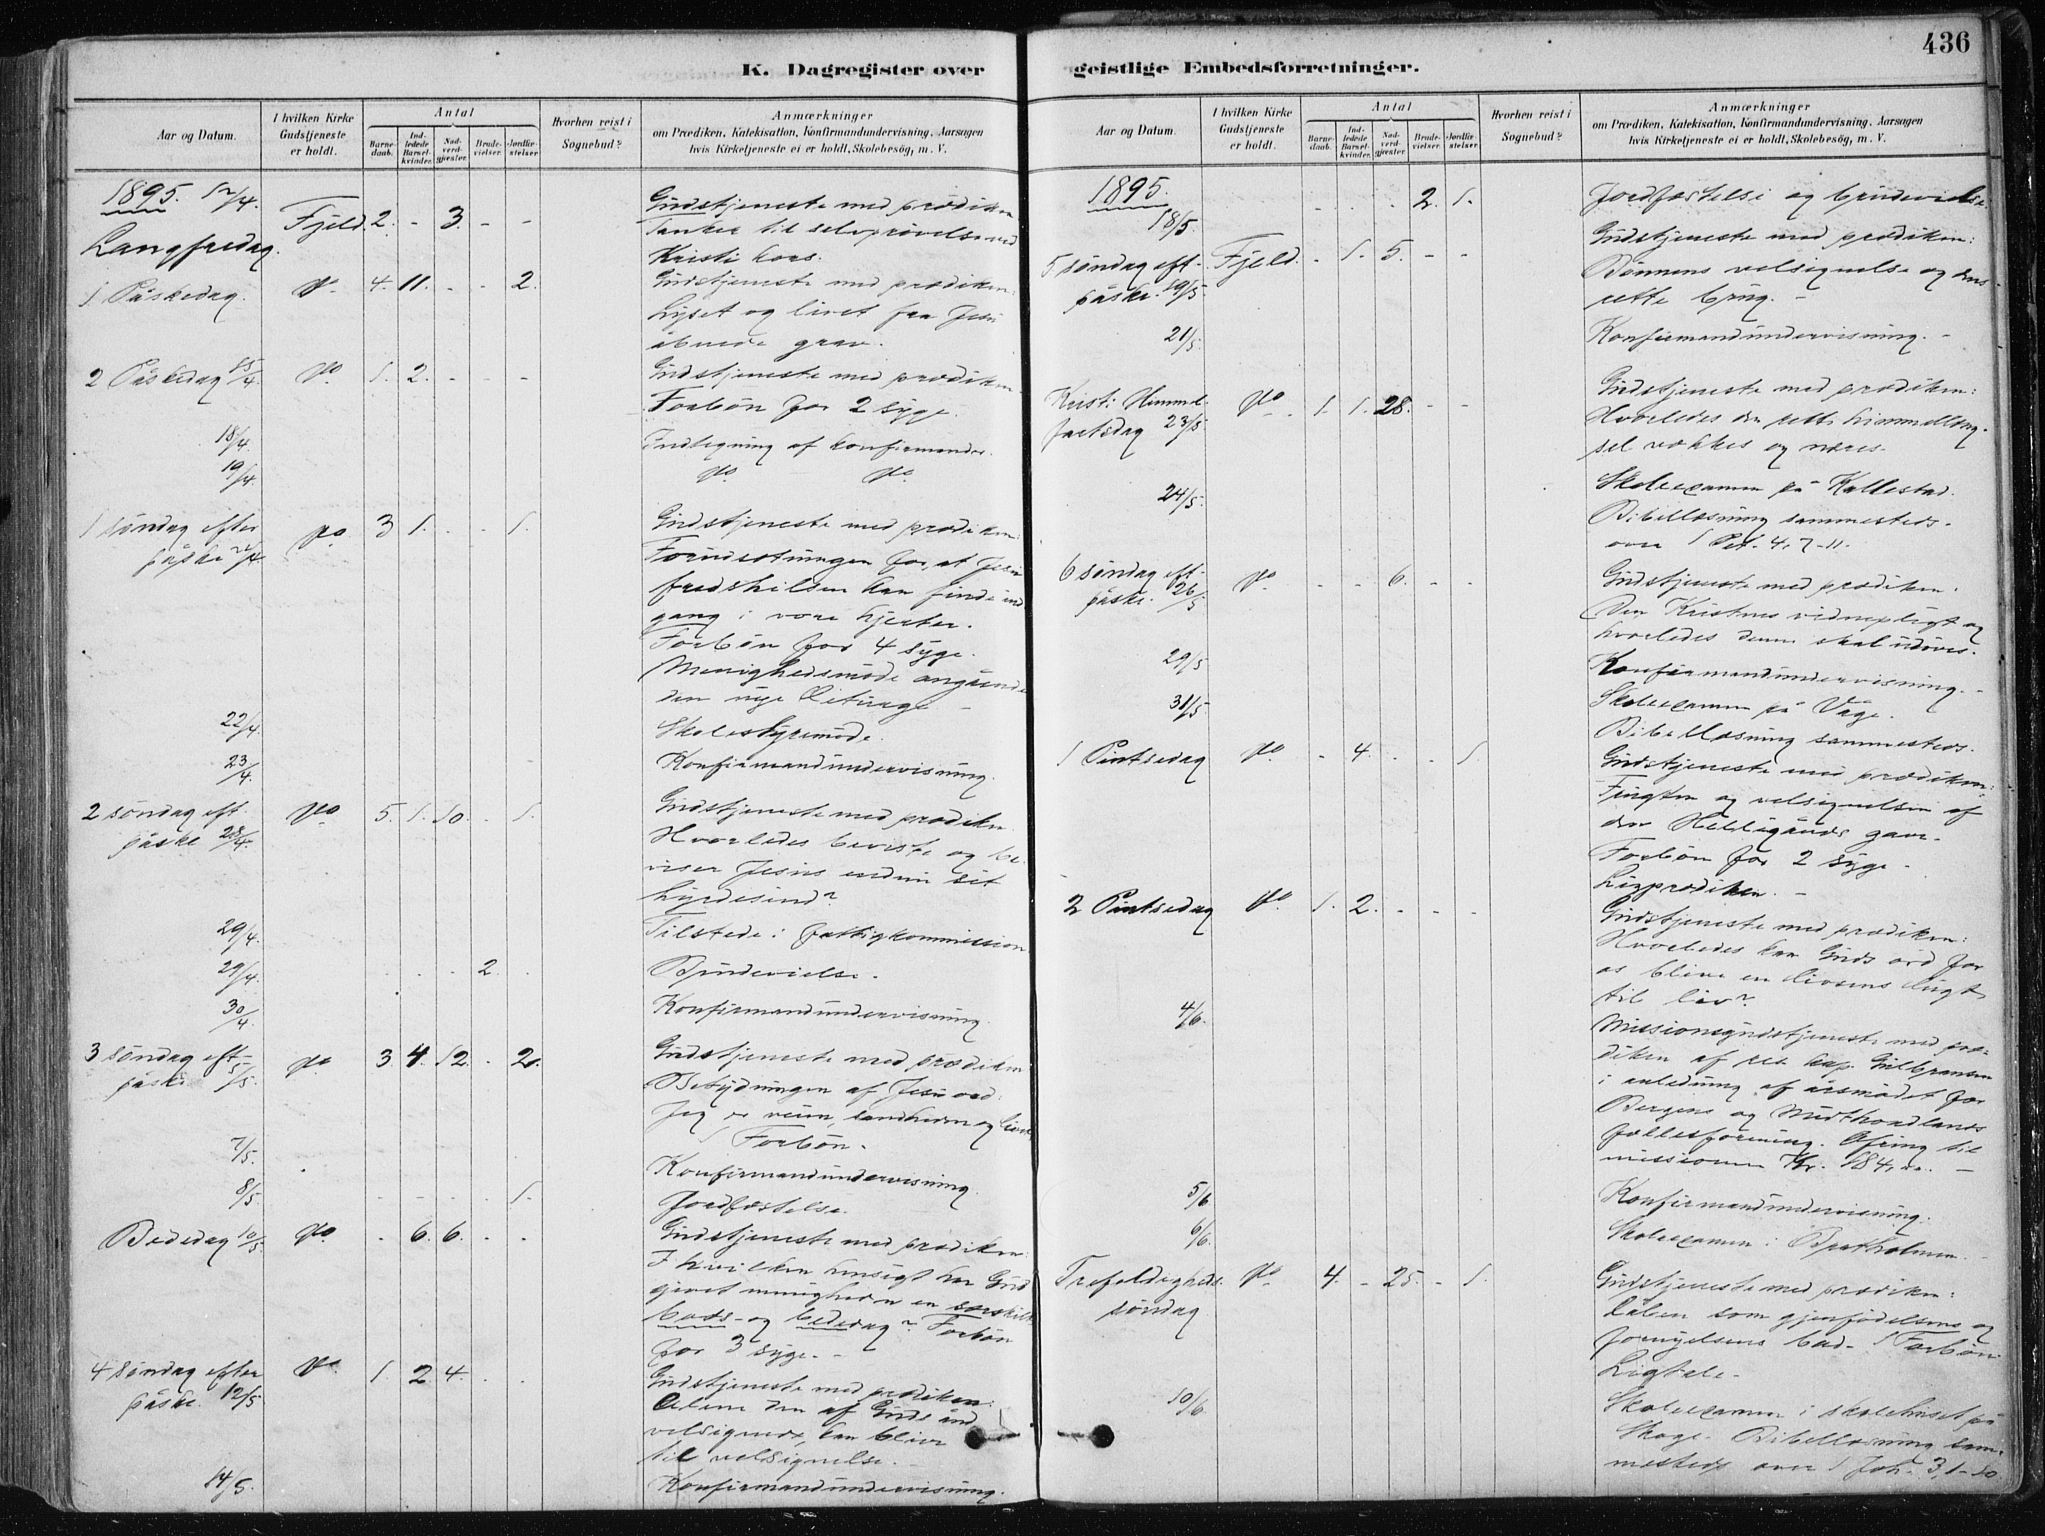 436
K. Dagregister over geistlige Embedsforretninger.
Aar og Datum.
I hvilken Kirke Gudstjeneste er holdt.
Antal
Barnedaab.
Indledede Barselkvinder.
Nadverdgjæster.
Brudevielser.
Jordfæstelser.
Hvorhen reist i Sognebud?
Anmærkninger
om Prædiken, Katekisation, Konfirmandundervisning, Aarsagen
hvis Kirketjeneste ei er holdt, Skolebesøg, m. V.
1895. 12/4. Fjeld. 2. - 3. - - Gudstjeneste med prædiken
Langfredag. Tanker til selvprøvelse ved
Kristi kors.
1 Påskedag. do. 4. 11. - - 2. Gudstjeneste med prædiken:
Lyset og livet fra Jesu
åbnede grav.
2 Påskedag 15/4. do. 1. 2. - - - Gudstjeneste med prædiken
Forbøn for 2 syge.
18/4. Indtegning af konfirmander.
19/4. do do.
1 søndag efter do 3 1. - - 1. Gudstjeneste med prædiken:
påske 21/4. Forudsætningen for, at Jesu
fredshilsen kan finde ind
gang i vore hjerter.
Forbøn for 4 syge.
Menighedsmøde angående
den nye
22/4. Skolestyremøde.
23/4. Konfirmandundervisning.
2 søndag eft. do. 5. 1. 10. - 1. Gudstjeneste med prædiken
påske 28/4. Hvorledes beviste og be-
viser Jesus endnu sit
hyrdesind?
29/4. Tilstede i fattigkommission
29/4. - - - 2. - Brudevielse.
30/4. Konfirmandundervisning.
3 søndag eft. do 3. 4. 12. - 2. Gudstjeneste med prædiken
påske 5/5. Betydningen af Jesu ord:
Jeg er veien, sandheden og livet
1 Forbøn.
7/5. Konfirmandundervisning.
8/5. - - - - 1. Jordfæstelse.
Bededag 10/5 do. - 6. 6. - - Gudstjeneste med prædiken:
I hvilken hensigt har Gud
givet menigheden en særskilt
bods- og bededag? Forbøn
for 3 syge. -
4 søndag efter do. 1 2 4. - - Gudstjeneste med prædiken:
påske. 12/5 Alene den af Guds ånd
velsignede, kan blive
til velsignelse. -
14/5. Konfirmandundervisning.
Aar og Datum.
I hvilken Kirke Gudstjeneste er holdt.
Antal
Barnedaab.
Indledede Barselkvinder.
Nadverdgjæster.
Brudevielser.
Jordfæstelser.
Hvorhen reist i Sognebud?
Anmærkninger
om Prædiken, Katekisation, Konfirmandundervisning, Aarsagen
hvis Kirketjeneste ei er holdt, Skolebesøg, m. V.
1895. 18/5. - - - 2. 1. Jordfæstelse og brudevielse.
5 søndag eft. Fjeld. - 1. 5. - - Gudstjeneste med prædiken:
påske. 19/5. Bønnens velsignelse og dens
rette brug. -
21/5. Konfirmandundervisning. -
Kristi Himmel- do. 1. 1. 28. - - Gudstjeneste med prædiken:
fartsdag 23/5 Hvorledes den rette himmellæng-
sel vækkes og næres.
24/5. Skoleexamen på Kallestad.
Bibellæsning sammesteds.
over 1 Pet. 4,7-11.
6 søndag eft. do. - - 6. - - Gudstjeneste med prædiken:
påske. 26/5 Den Kristnes vidnepligt og
hvorledes denne skal udøves.
29/5 Konfirmandundervisning. -
31/5. Skoleexamen på Våge.
Bibellæsning sammesteds.
1 Pintsedag do. - 4. - - 1. Gudstjeneste med prædiken:
Frugten og velsignelsen af
den Helligånds gave.
Forbøn for 2 syge.
Ligprædiken. -
2 Pintsedag do. 1. 2. - - - Gudstjeneste med prædiken:
Hvorledes kan Guds ord for
os blive en livsens lugt
til liv?
4/6. Missionsgudstjeneste med præ-
diken af res. kap. Gulbransen
i anledning af årsmødet for
Bergens og Midthordlands
fællesforening. Ofring til
missionen Kr. 184,
5/6 Konfirmandundervisning.
6/6. Skoleexamen i Bratholmen.
Trefoldigheds- do. 4. - 25. - 1. Gudstjeneste med prædiken:
søndag Dåben som gjenfødelsens og
fornyelsens bad. 1 Forbøn
Ligtale.
10/6. Skoleexamen i skolehuset på
Skoge. Bibellæsning sam-
mesteds over 1 Joh. 3,1-10.